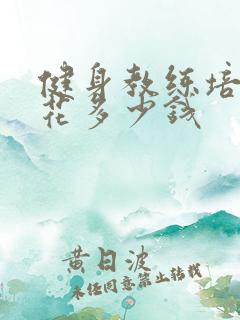 健身教练培
花多少钱
黄日波
未经同意禁止转载